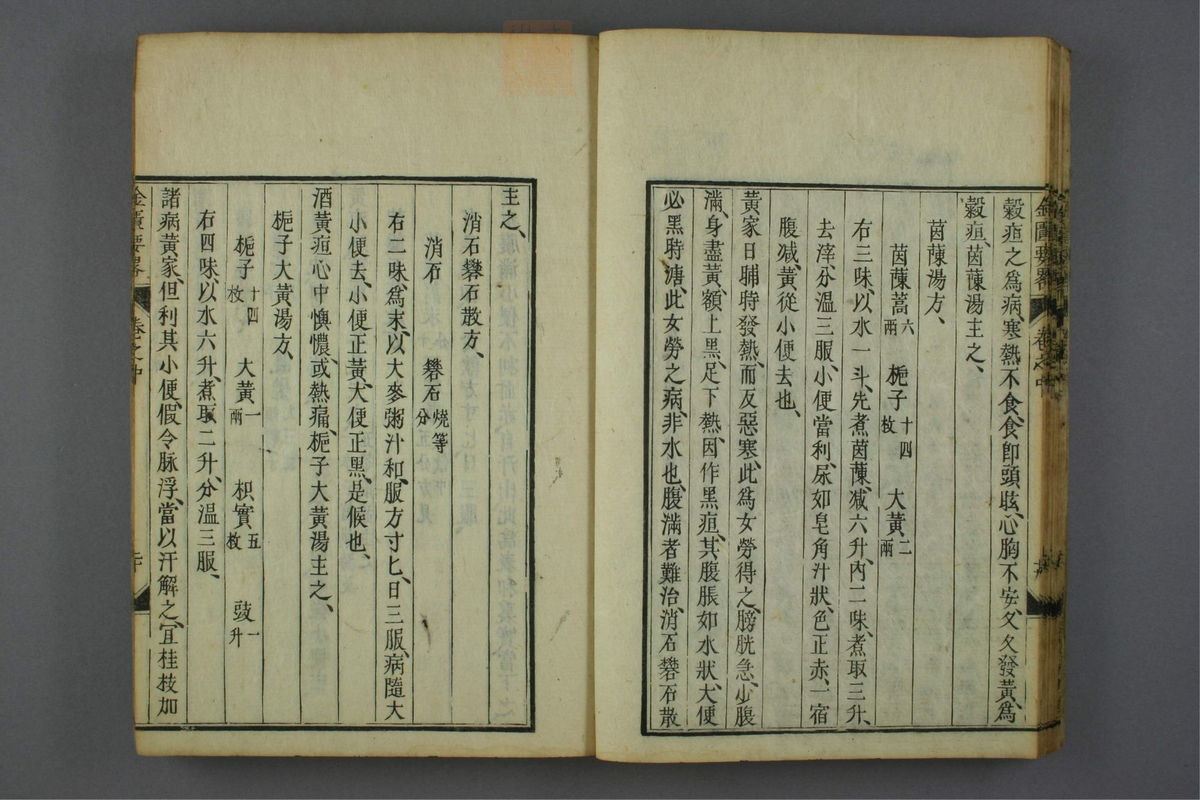 穀疸之爲病、寒熱不食、食卽頭眩、心胸不安、久久發黃、爲
穀疸、茵蔯湯主之、
茵蔯湯方、
茵蔯蒿六兩 梔子十四枚 大黃二兩
右三味、以水一斗、先煮茵蔯、減六升、內二味、煮取三升、
去滓、分溫三服、小便當利、尿如皂角汁狀、色正赤、一宿
腹减、黃從小便去也、
黃家日晡時發熱、而反惡寒、此爲女勞得之、膀胱急、少腹
滿、身盡黃、額上黑、足下熱、因作黑疸、其腹脹如水狀、大便
必黑、時溏、此女勞之病、非水也、腹滿者難治、消石礬石散
主之、
消石礬石散方、
消石 礬石燒等分
右二味、爲末、以大麥粥汁和、服方寸匕、日三服、病隨大
小便去、小便正黃、大便正黑、是候也、
酒黃疸、心中懊憹、或熱痛、梔子大黃湯主之、
梔子大黃湯方、
梔子十四枚 大黃一兩 枳實五枚 豉一升
右四味、以水六升、煮取二升、分溫三服、
諸病黃家、但利其小便、假令脉浮、當以汗解之、宜桂枝加
金匱要畧 卷之中